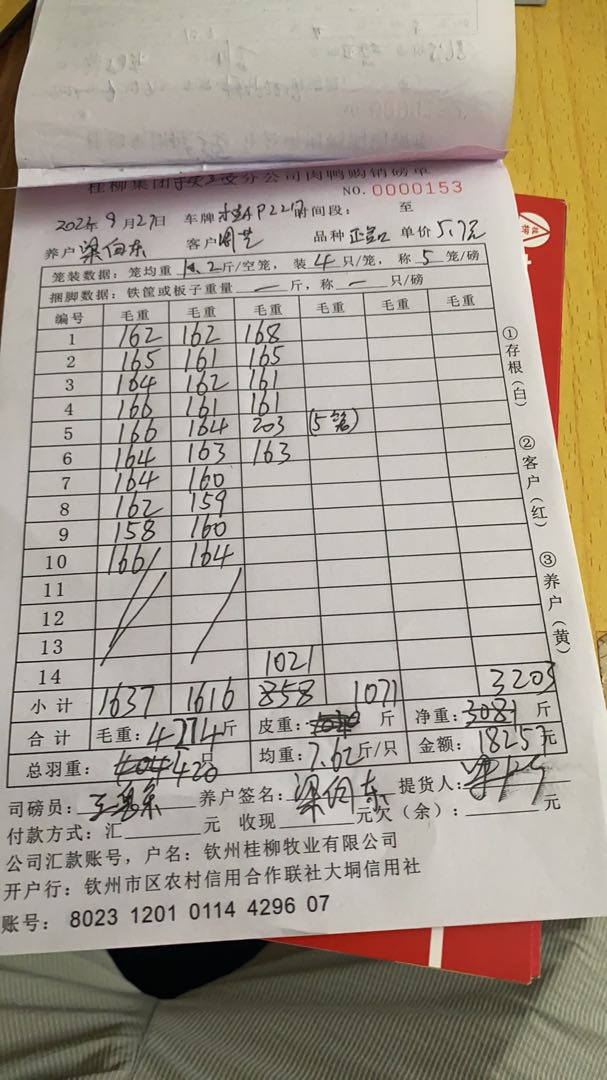 桂柳集团 分公司肉鸭购销磅单
NO. 0000153
9月27日 车牌 桂AP227 时间段: 至
养户 梁向东 客户 周艺 品种 单价 5.7元
笼装数据: 笼均重 2斤/空笼, 装 4 只/笼, 称 5 笼/磅
捆脚数据: 铁筐或板子重量 — 斤, 称 — 只/磅
编号 毛重 毛重 毛重 毛重 毛重 毛重
1 162 162 168
2 165 161 165
3 164 162 161
4 166 161 161
5 166 164 203 (5笼)
6 164 163 163
7 164 160
8 162 159
9 158 160
10 166 164
11
12
13
14 1021
小计 1637 1616 858 1071 3203
合计 毛重: 4274斤 皮重: 斤 净重: 3081 斤
总羽重: 420 只 均重: 7.62斤/只 金额: 18257元
司磅员: 养户签名: 梁向东 提货人:
付款方式: 汇 元 收现 元欠(余): 元
公司汇款账号, 户名: 钦州桂柳牧业有限公司
开户行: 钦州市区农村信用合作联社大垌信用社
账号: 8023 1201 0114 4296 07
①存根(白)
②客户(红)
③养户(黄)